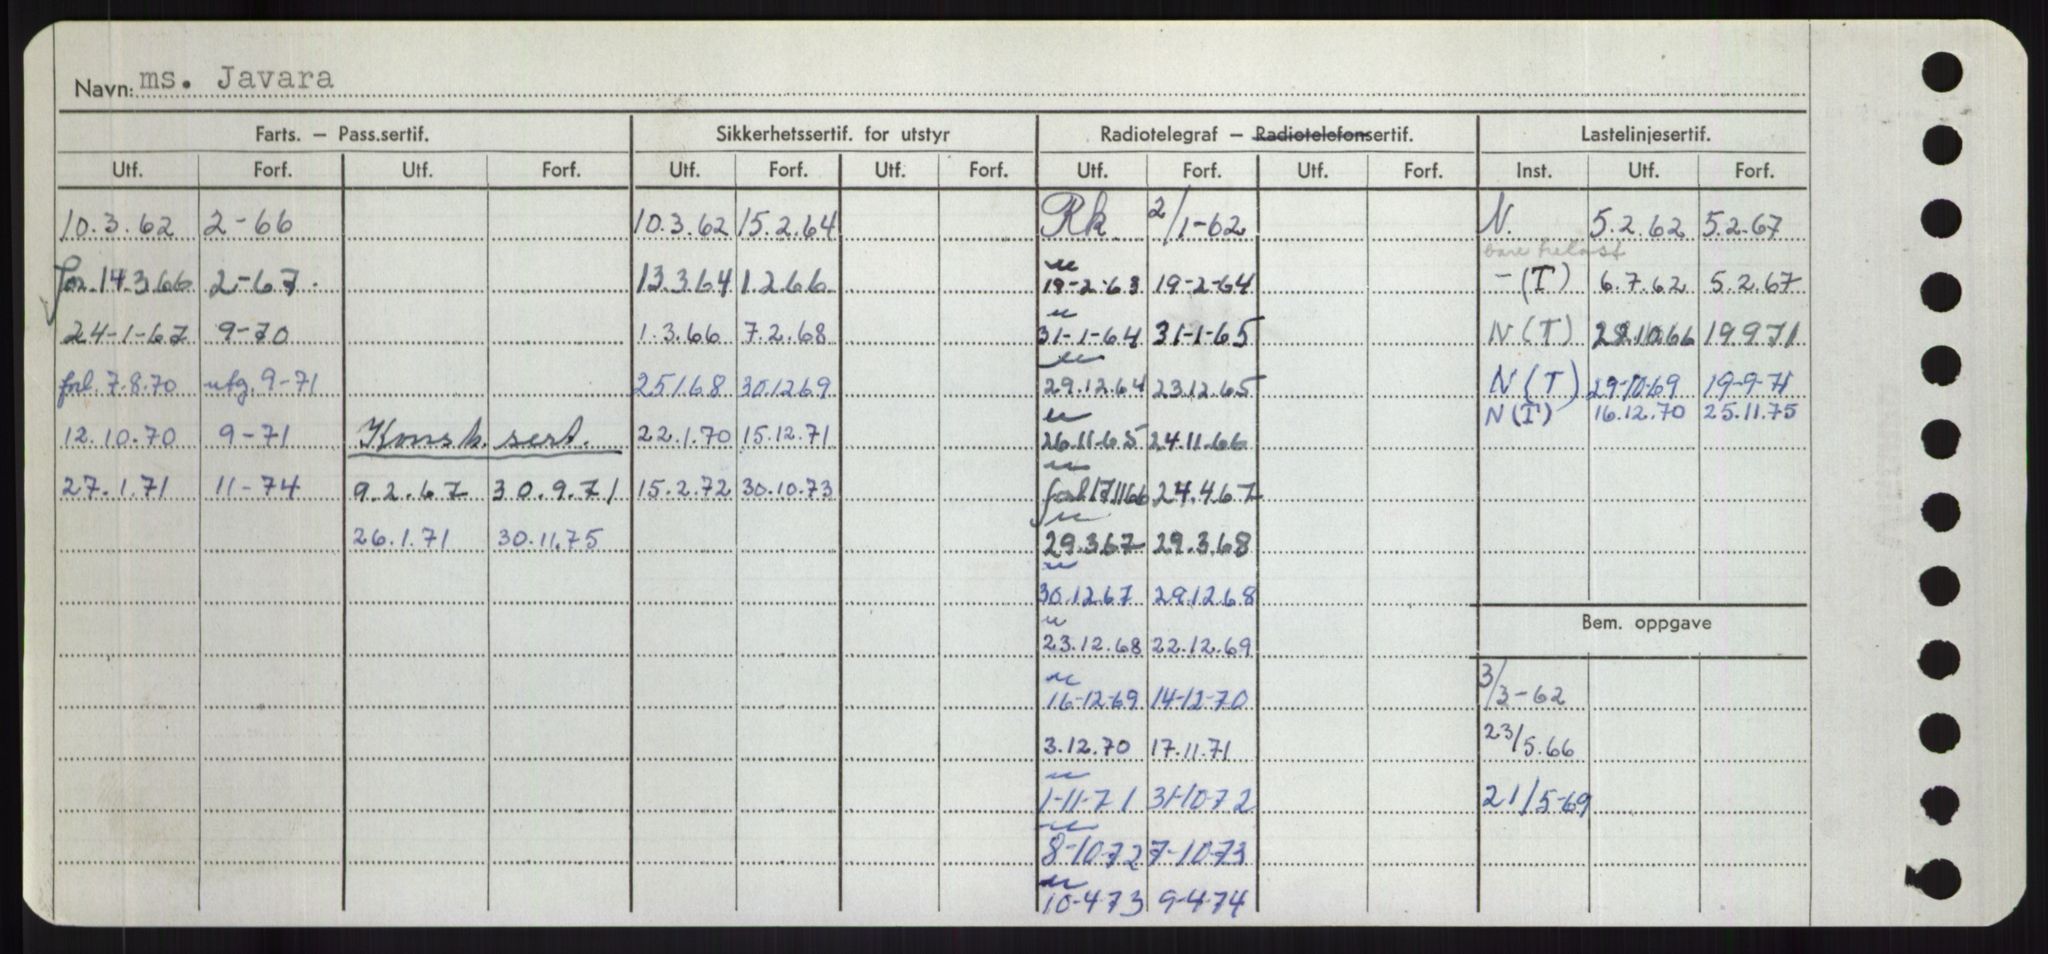 Navn: ms. Javara
Farts. — Pass.sertif. Sikkerhetssertif. for utstyr Radiotelegraf — Radiotelefonsertif. Lastelinjesertif.
Utf. Forf. Utf. Forf. Utf. Forf. Utf. Forf. Utf. Forf. Utf. Forf. Inst. Utf. Forf.
10.3.62 2-66 10.3.62 15.2.64 Rk 2/1-62 N. 5.2.62 5.2.67
14.3.66 2-67. 13.3.64 1.2.66 19-2-63 19-2-64 -(T) 6.7.62 5.2.67
24-1-67 9-70 1.3.66 7.2.68 31-1-64 31-1-65 N(T) 10.66 19971
forl. 7.8.70 utg. 9-71 25168 30.1269 29.12.64 23.12.65 N(T) 29-10-69 19-9-71
N(T) 16.12.70 25.11.75
12.10.70 9-71 Konsk. sert. 22.1.70 15.12.71 26.11-65 24.11.66
27.1.71 11-74 9.2.67 30.9.71 15.2.72 30.10.73 forl 171166 24.4.67
26.1.71 30.11.75 29.3.67 29.3.68
30.12.67 29.12.68
Bem. oppgave
23.12.68 22.12.69
16-12-69 14-12-70 3/3-62
3.12.70 17.11.71 23/5.66
1-11-71 31-10-72 21/5-69
8-10-72 7-10-73
10-4-73 9-4-74